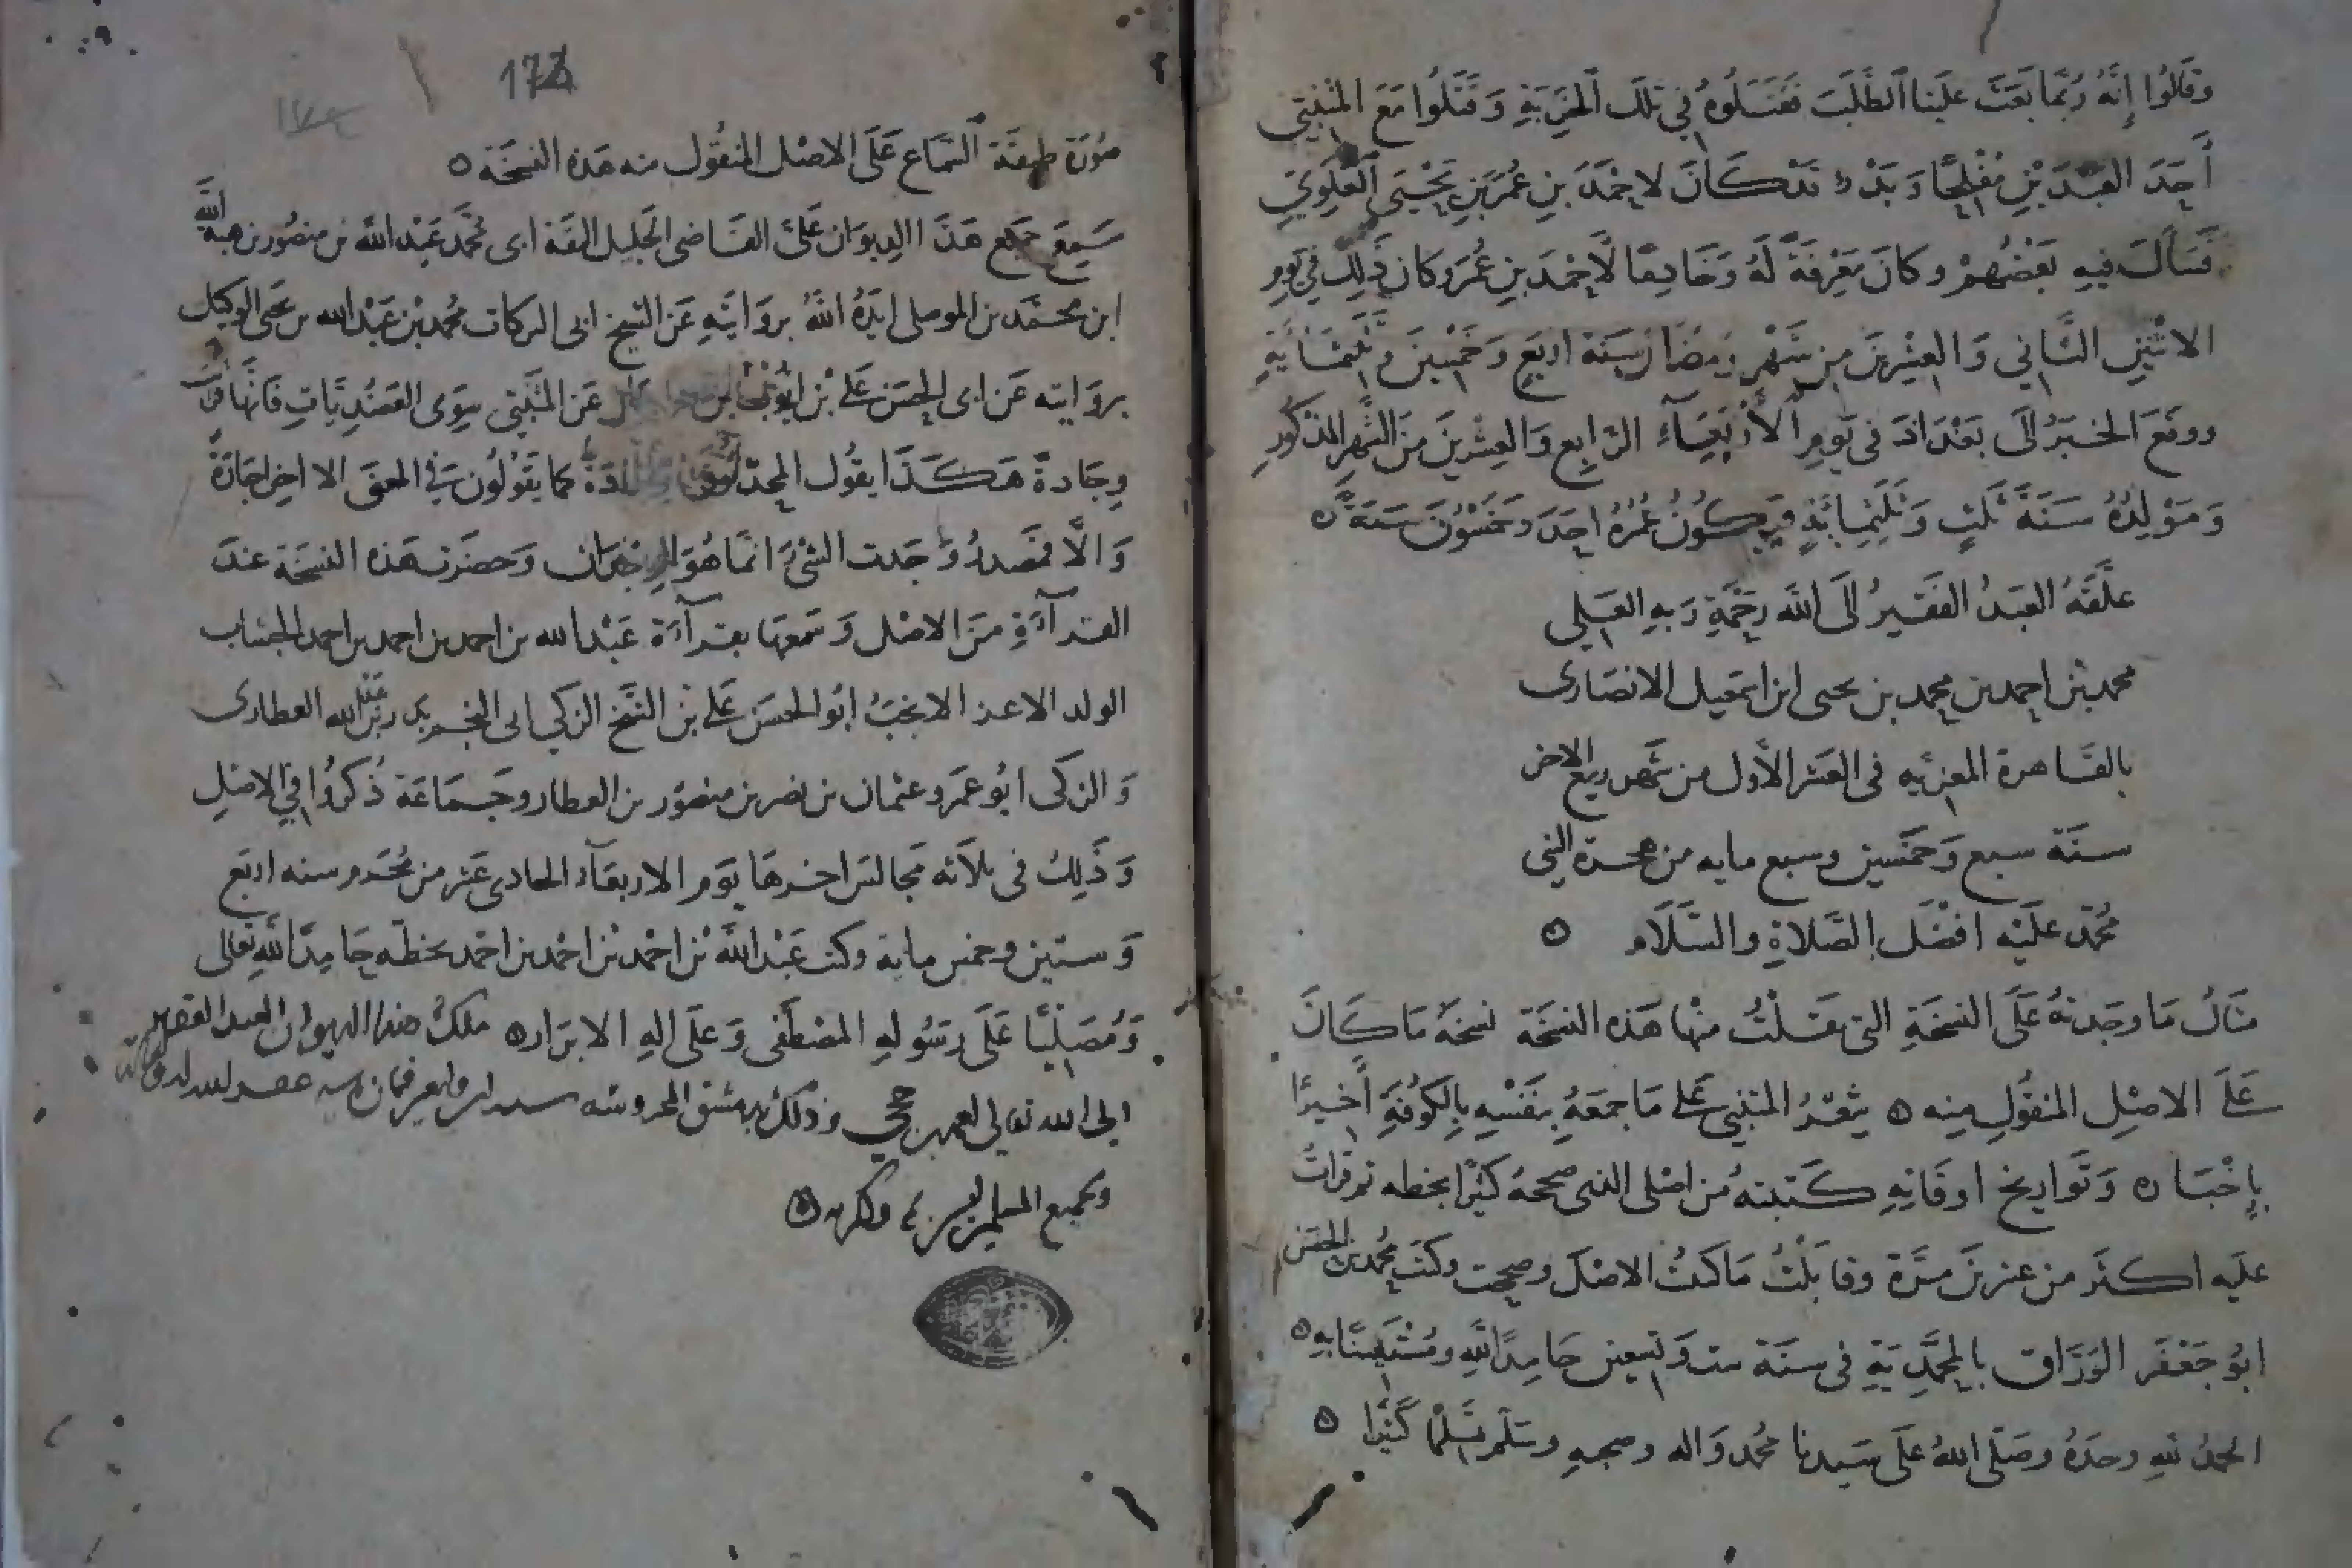 وقالوا إنه ربما بعث علينا الطلب فقتلوه في تلك الخربة وقتلوا مع المتنبي
أحد العبدين مفلحا وبدر قد كان لاحمد بن عمر بن يحيى العلوي
فسأل فيه بعضهم وكان معرفة له وخادما لاحمد بن عمر وكان ذلك في يوم
الاثنين الثاني والعشرين من شهر رمضان سنة اربع وخمسين وثلثمائة
ووقع الخبر الى بغداد في يوم الأربعاء الرابع والعشرين من الشهر المذكور
ومولده سنة ثلث وثلثمائة فيكون عمره احد وخمسون سنة ه
علقه العبد الفقير الى الله رحمة ربه العلي
محمد بن احمد بن محمد بن يحيى ابن اسمعيل الانصارى
بالقاهرة المعزيه فى العشر الأول من شهر ربيع الاخر
سنة سبع وخمسين وسبع مايه من هجرة النبي
محمد عليه افضل الصلاة والسلام ه
مثال ما وجدته على النسخة التى نقلت منها هذه النسخة نسخة ما كان
على الاصل المنقول منه ه شعر المتنبي على ما جمعه بنفسه بالكوفة أخيرا
بإخباره وتواريخ اوقاته كتبته من اصلى الذى صححه كثيرا بخطه ثم قرات
عليه اكثر من عشرين مرة وقابلت ماكتب الاصل وصححت وكتب محمد بن الحسن
ابو جعفر الوراق بالمحمدية فى سنة ست وتسعين حامدا لله ومستعينا به ه
الحمد لله وحده وصلى الله على سيدنا محمد واله وصحبه وسلم تسليما كثيرا ه
173
صورة طبقة السماع على الاصل المنقول منه هذه النسخة ه
سمع جميع هذا الديوان على القاضى الجليل الثقة ابى محمد عبد الله بن منصور بن هبة الله
ابن محمد بن الموصلى ايده الله بروايته عن الشيخ ابى البركات محمد بن عبد الله بن يحيى الوكيل
بروايته عن ابى الحسن على بن ايوب عن المتنبى سوى العضديات فانها
وجادة هكذا يقول المحدثون كما يقولون فى المعنى الاخر اجازة
والا فمصدر وجدت الشئ انما هو الوجدان وحضرت هذه النسخة عند
القراءة من الاصل وسمعها بقراءة عبد الله بن احمد بن احمد بن احمد الخشاب
الولد الاعز الانجب ابو الحسن على بن الشيخ الزكى ابى العطارى
والزكى ابو عمرو عثمان بن نصر بن منصور بن العطار وجماعة ذكروا فى الاصل
وذلك فى ثلاثه مجالس اخرها يوم الاربعاء الحادى عشر من محرم سنه اربع
وستين وخمس ماية وكتب عبد الله بن احمد بن احمد بن احمد بخطه حامدا لله تعالى
ومصليا على رسوله المصطفى وعلى اله الابرار ه ملك هذا الديوان العبد الفقير
الى الله تعالى وذلك بدمشق المحروسه غفر الله له ولوالديه
ولجميع المسلمين وكرمه ه